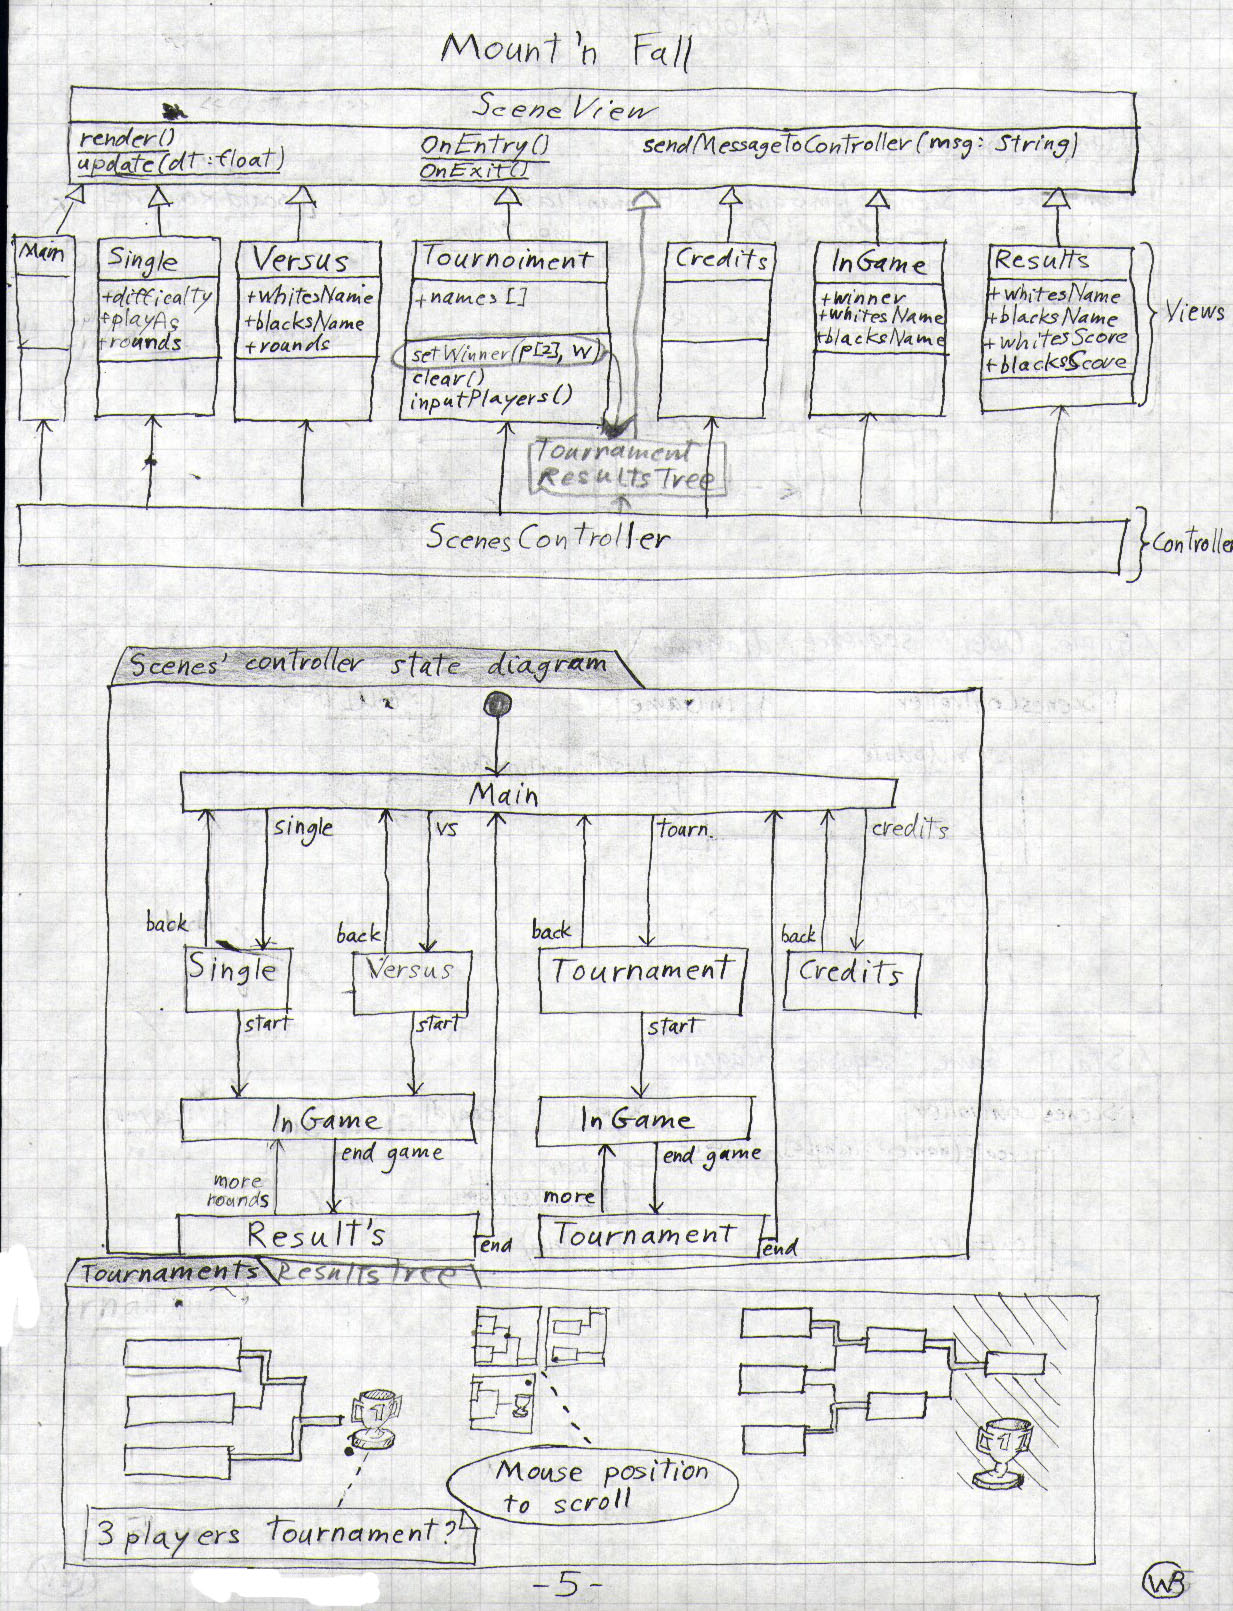 Mount'n Fall
SceneView
render()
update(dt:float)
OnEntry()
OnExit()
sendMessageToController(msg: String)
Main
Single
+difficalty
+playAs
+rounds
Versus
+whitesName
+blacksName
+rounds
Tournoiment
+names[]
setWinner(p[2], W)
clear()
inputPlayers()
Credits
InGame
+winner
+whitesName
+blacksName
Results
+whitesName
+blacksName
+whitesScore
+blacksScore
Views
Tournament
ResultsTree
ScenesController
Controller
Scenes' controller state diagram
Main
single
vs
tourn.
credits
back
back
back
back
Single
Versus
Tournament
Credits
start
start
start
InGame
InGame
more
rounds
end game
more
end game
Result's
end
Tournament
end
Tournaments
ResultsTree
1
1
Mouse position
to scroll
3 players tournament?
-5-
WB